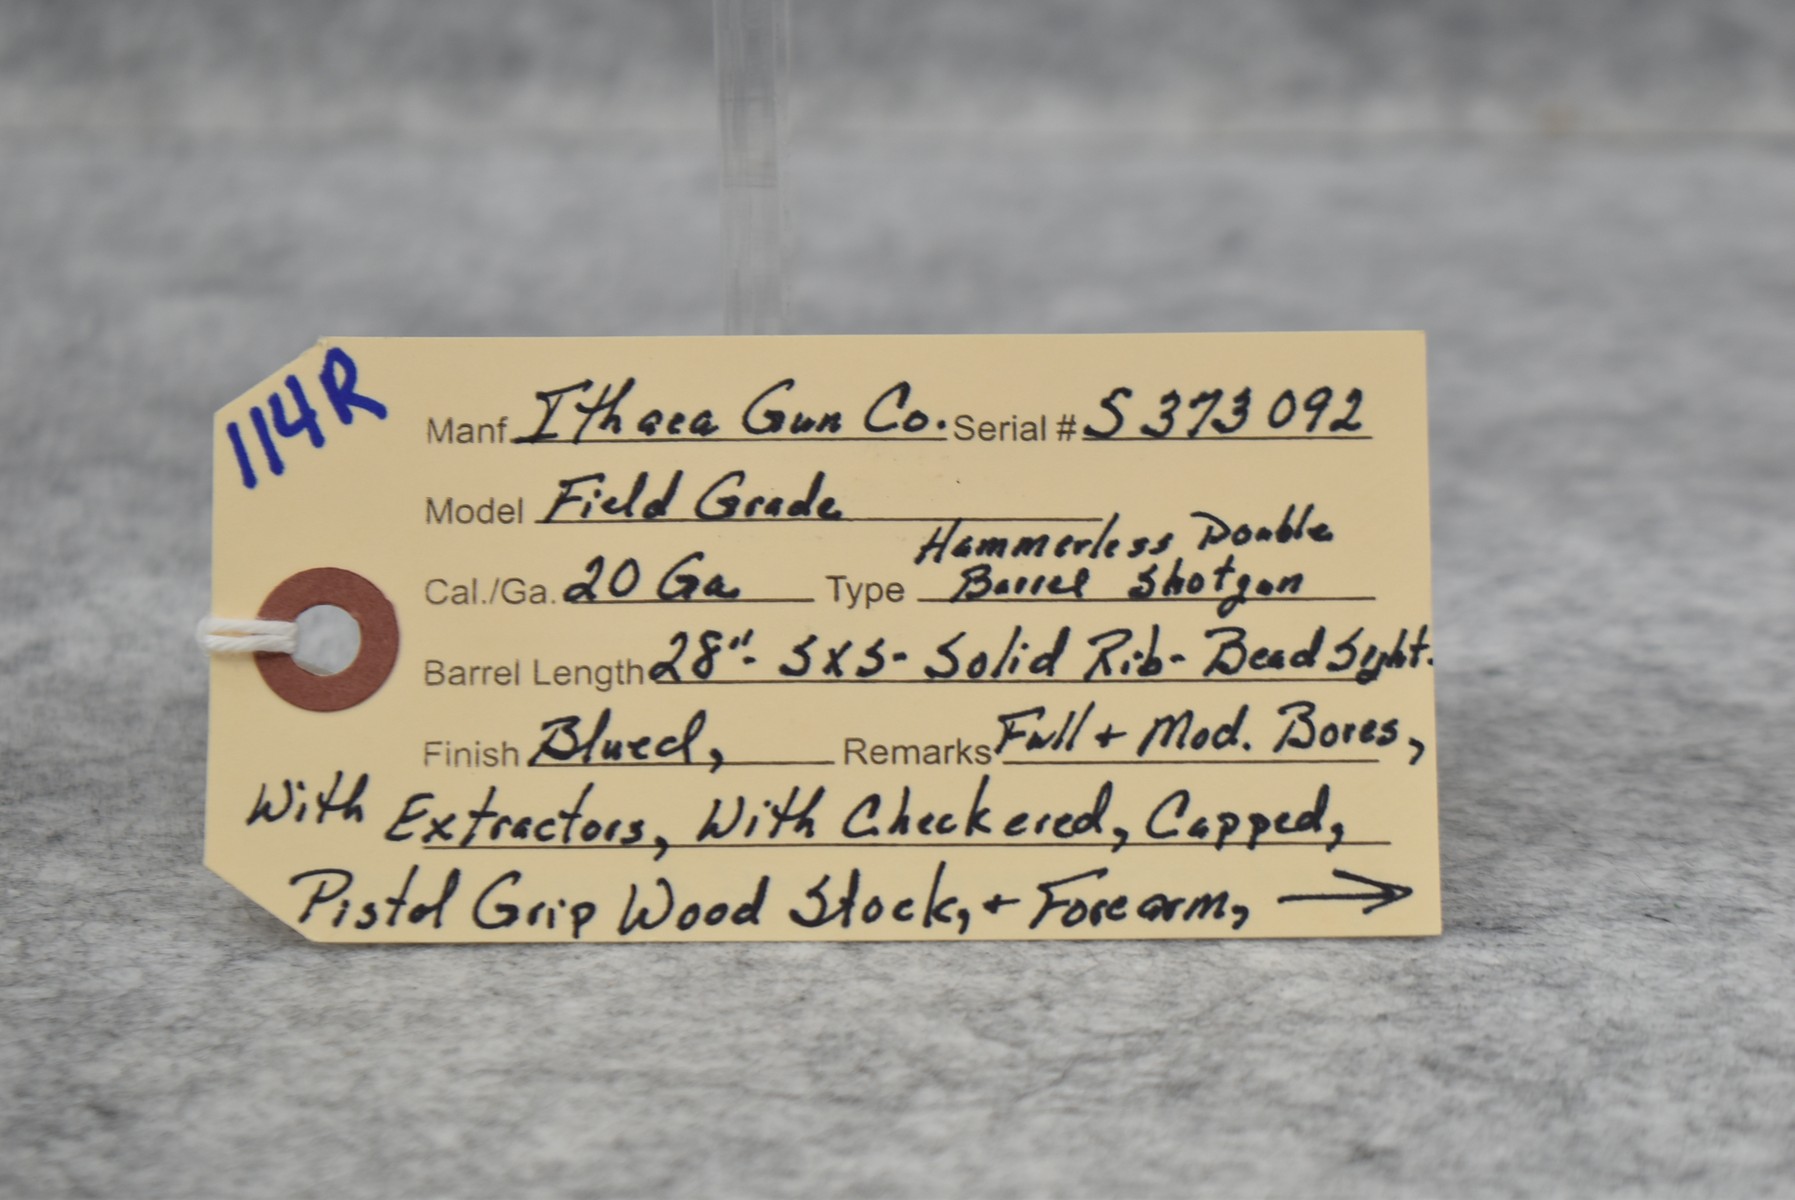 114R
Manf Ithaca Gun Co. Serial # S373092
Model Field Grade
Hammerless Double
Cal./Ga. 20 Ga. Type Barrel Shotgun
Barrel Length 28"- SXS- Solid Rib- Bead Sight.
Finish Blued, Remarks Full + Mod. Bores,
With Extractors, With Checkered, Capped,
Pistol Grip Wood Stock, + Forearm, →